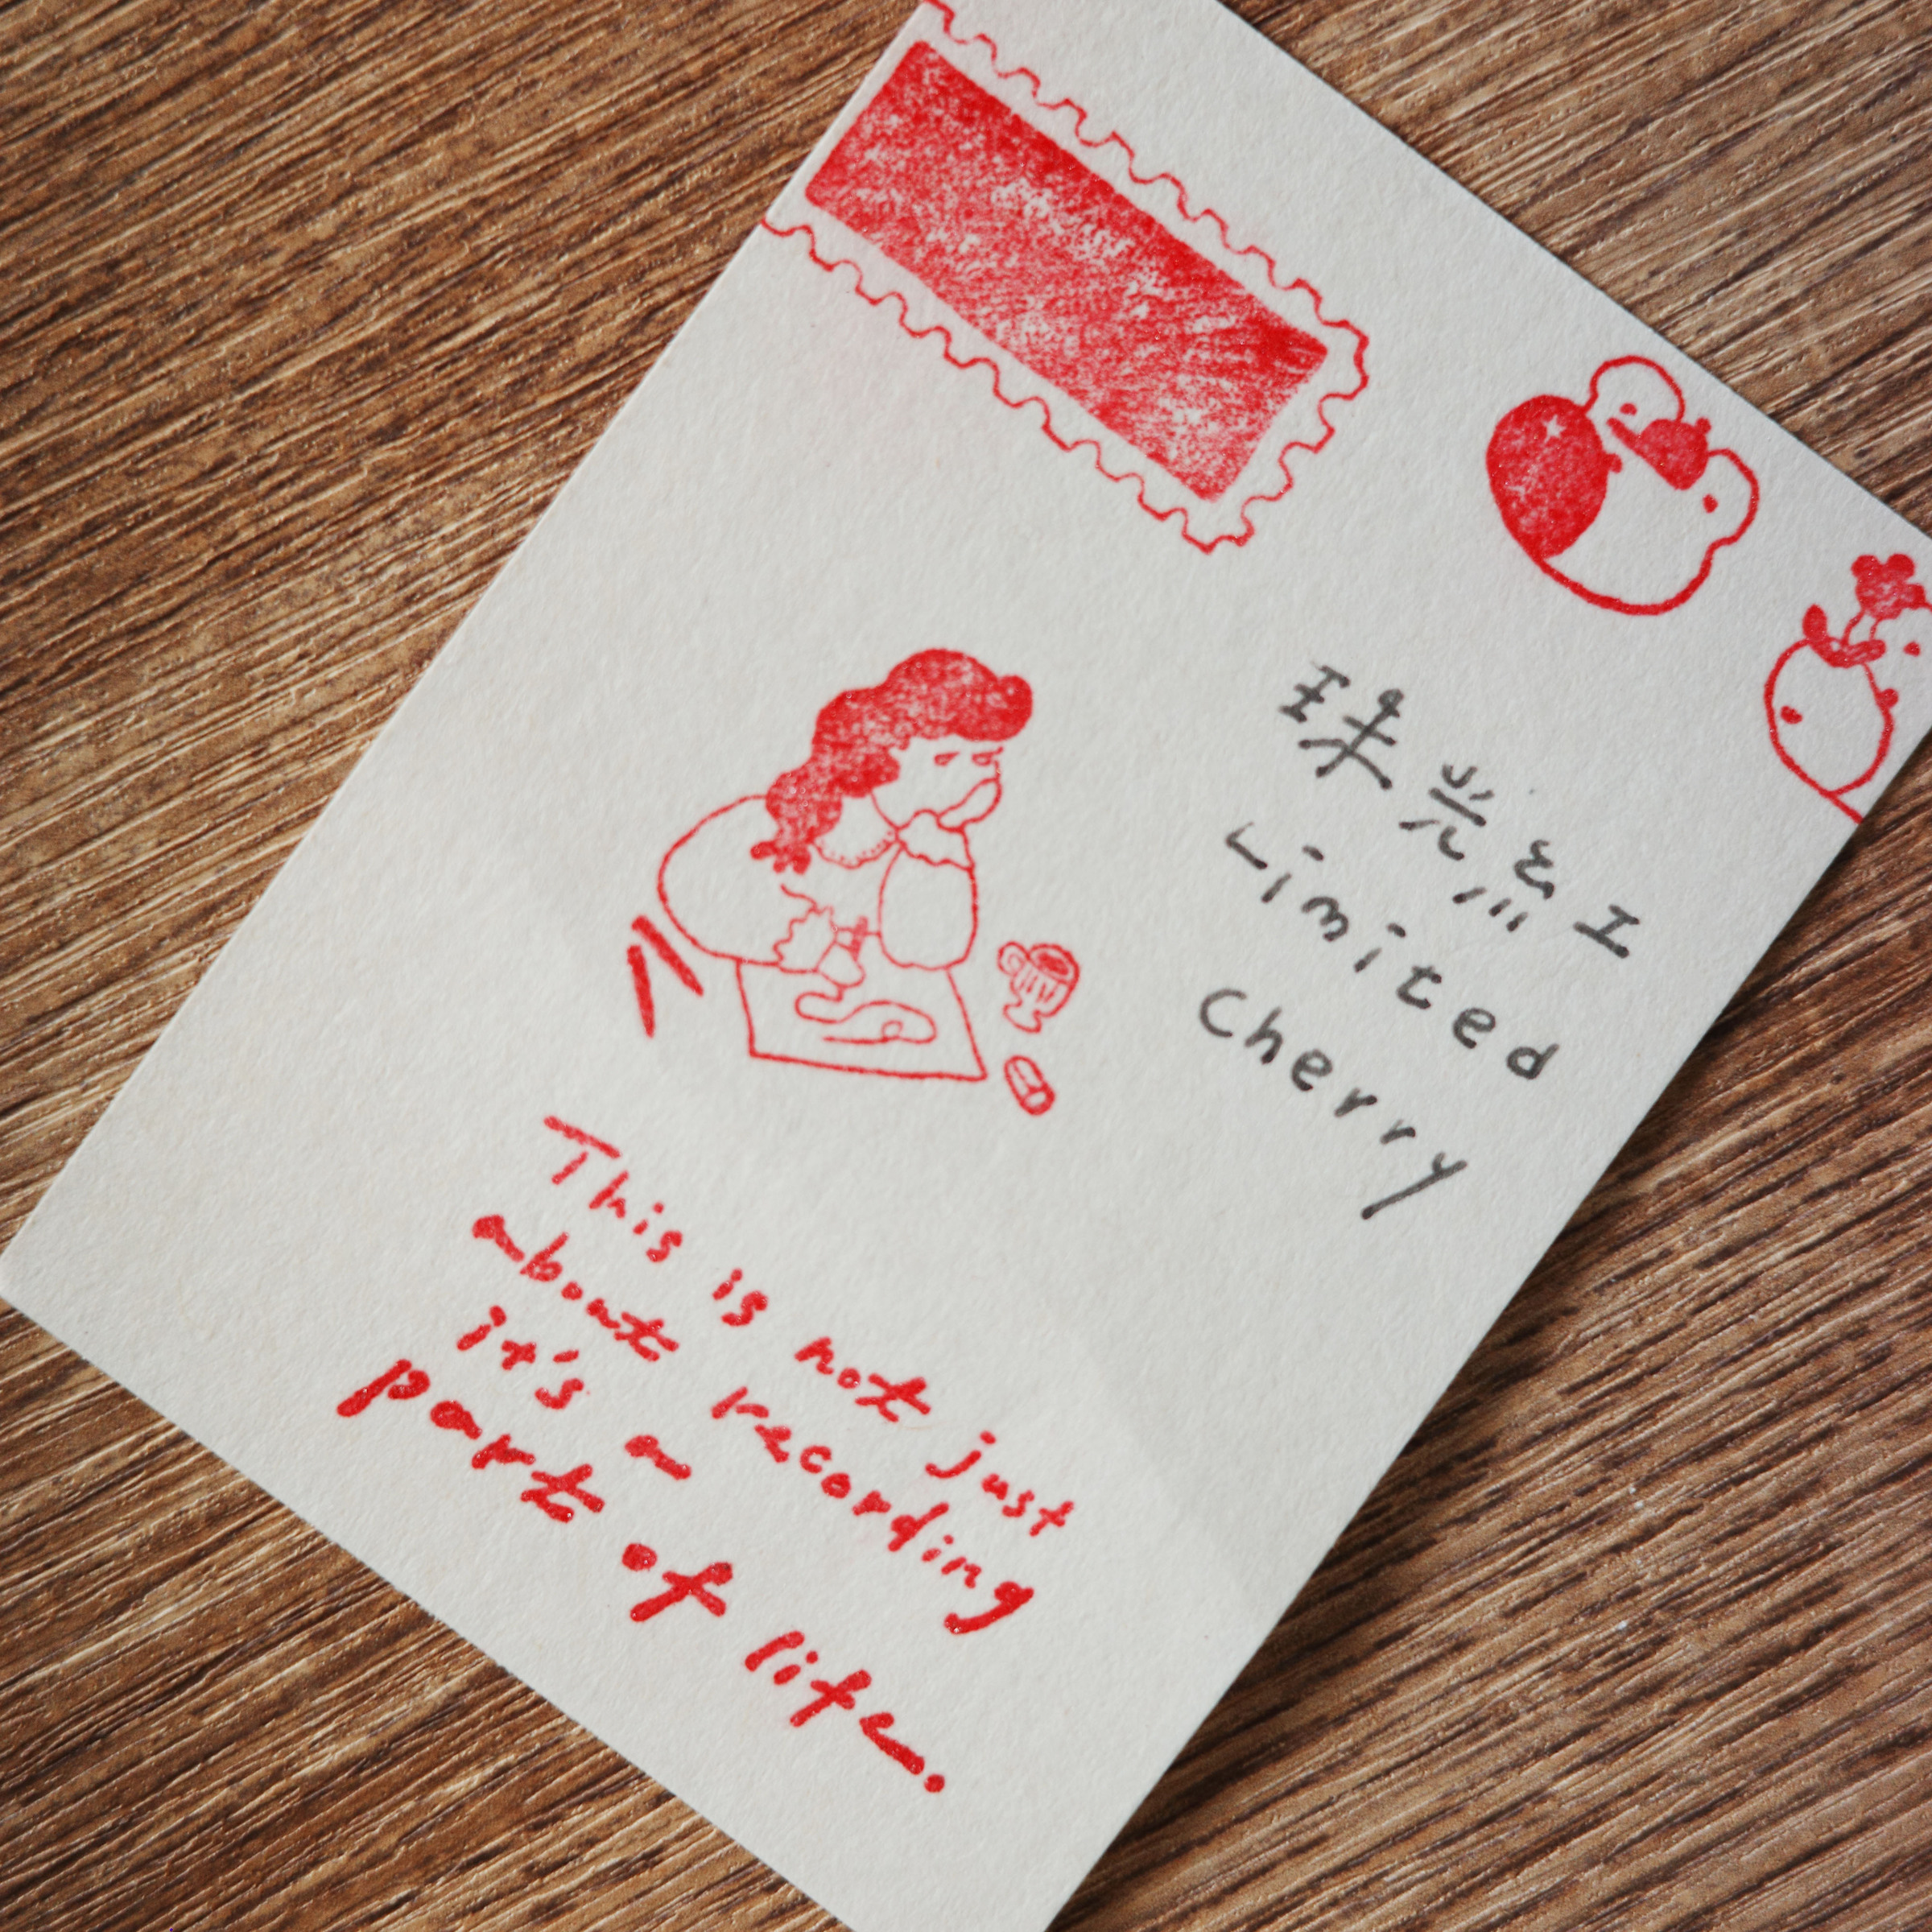 珠光紅
Limited
Cherry
This is not just
about recording
it's a
part of life.